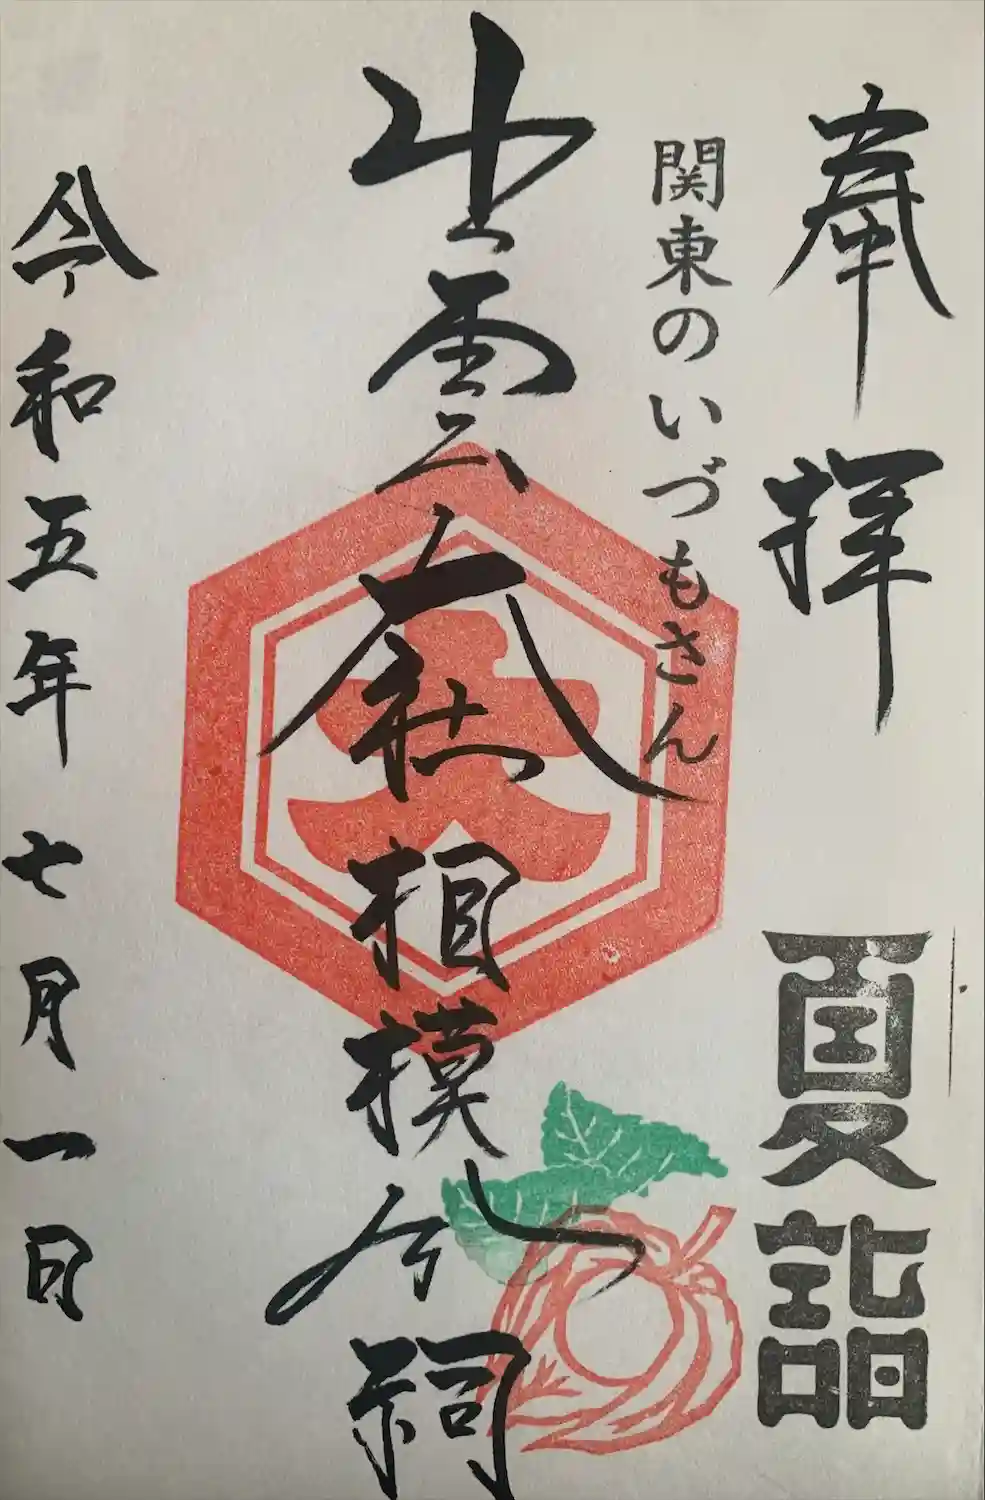 奉拝
夏詣
関東のいづもさん
出雲大社相模分祠
令和五年七月一日